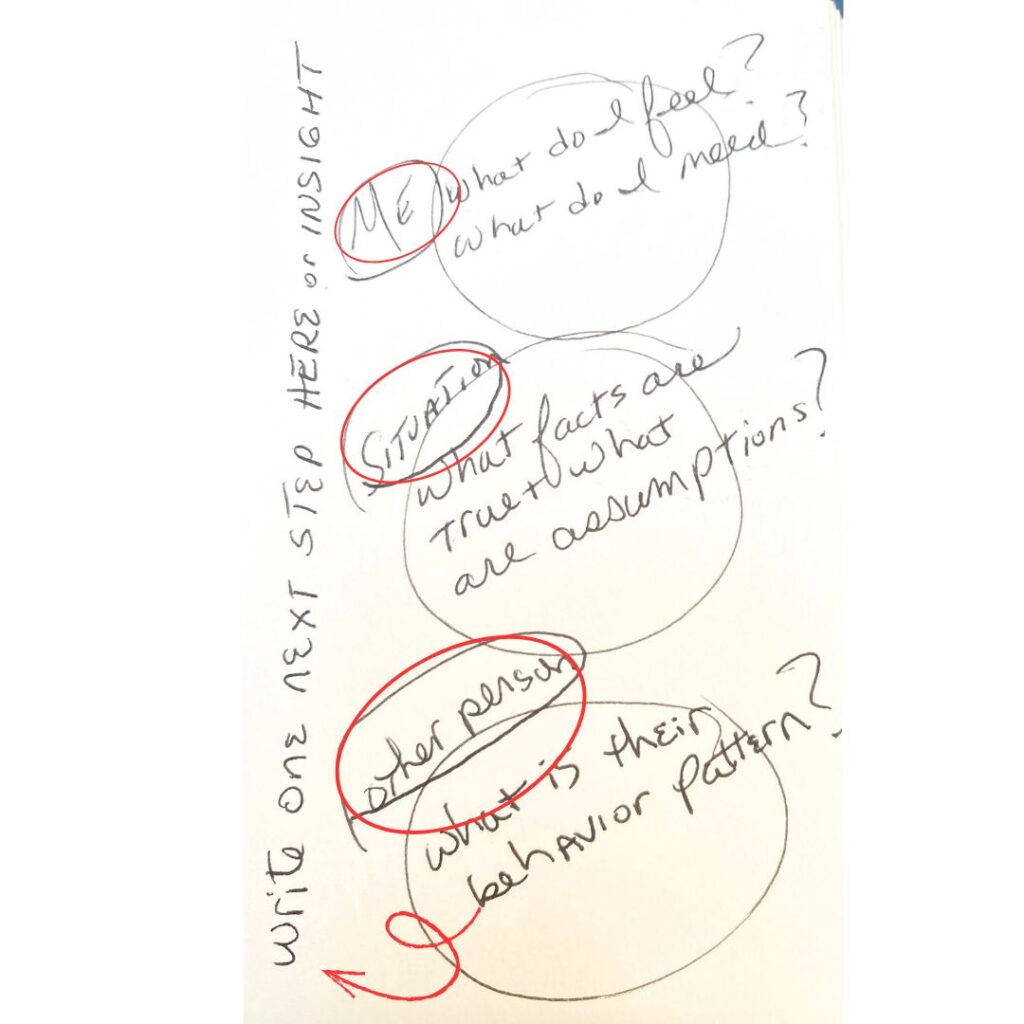 ME
what do I feel?
what do I need?
SITUATION
What facts are
true + what
are assumptions?
other person
what is their
behavior pattern?
write ONE NEXT STEP HERE or INSIGHT